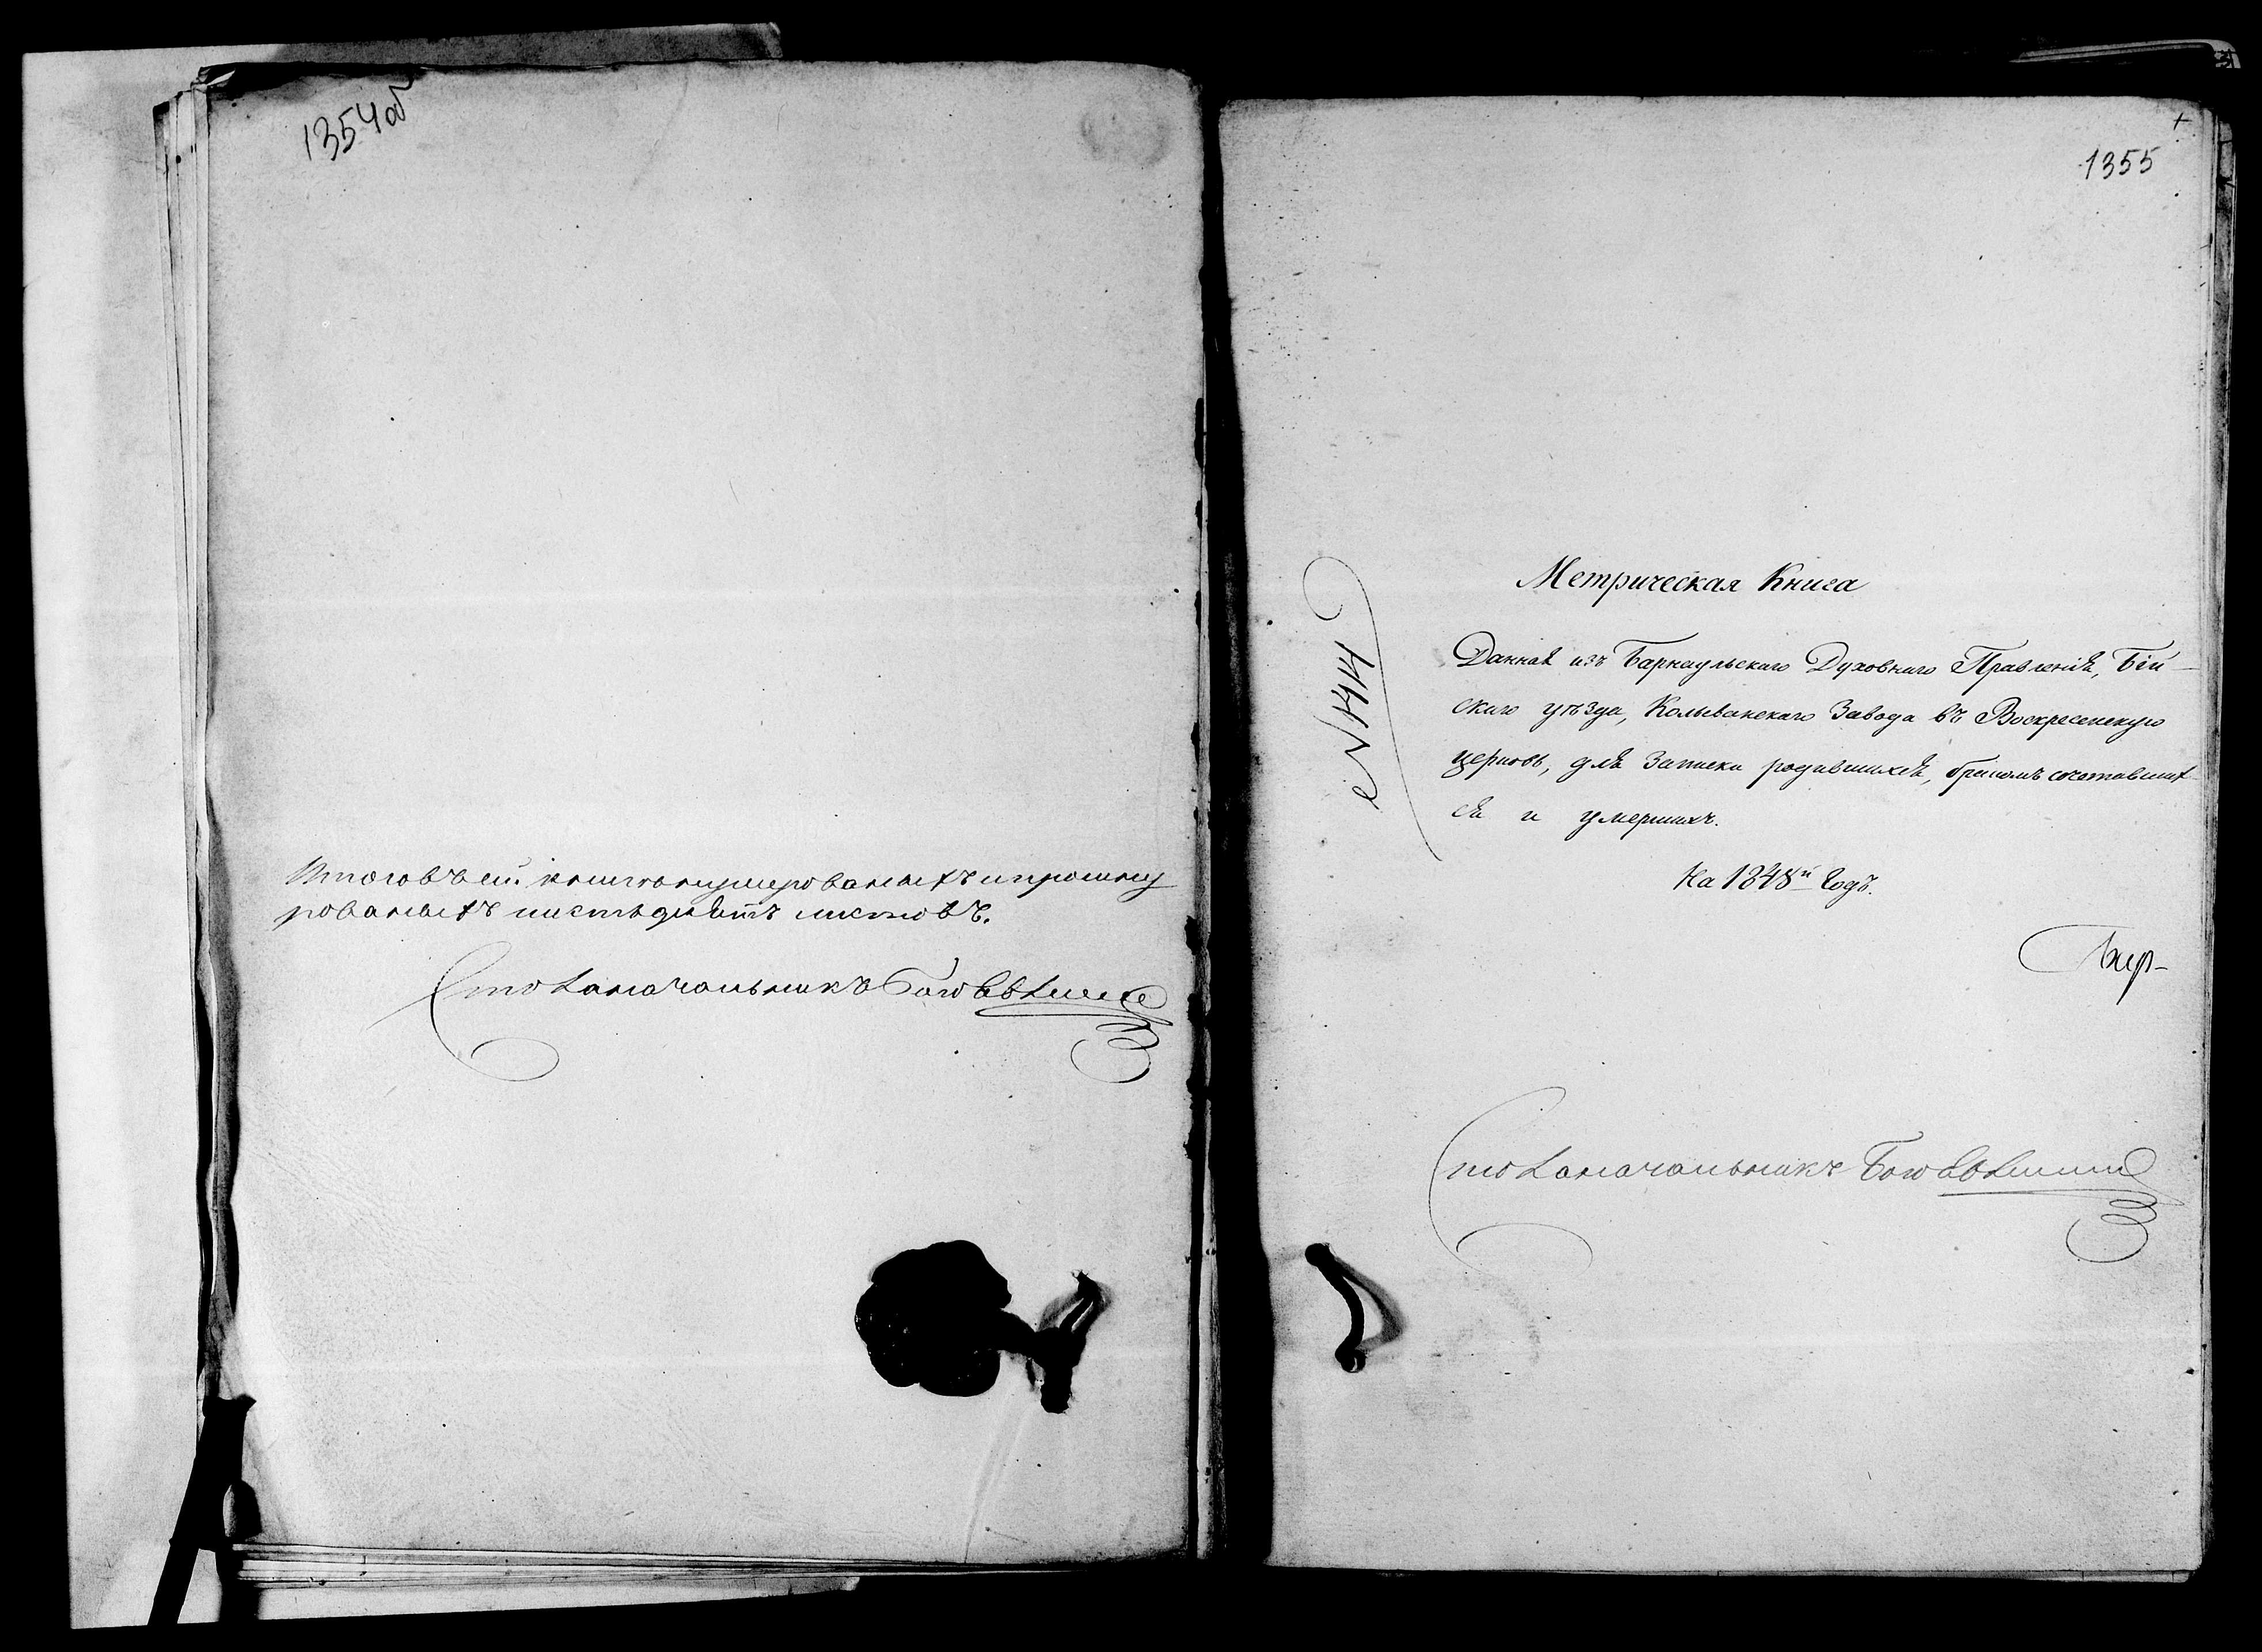 1354об
Итого въ сей книге нумерованыхъ и прошну
рованыхъ шестьдесятъ листовъ.
Столоначальникъ
1355
Метрическая Книга
Данная изъ Барнаульскаго Духовнаго Правленія, Бій-
скаго уѣзда, Колыванскаго Завода въ Воскресенскую
церковь, для записки родившихся, бракомъ сочетавших
ся и умершихъ.
На 1848й Годъ.
Столоначальникъ